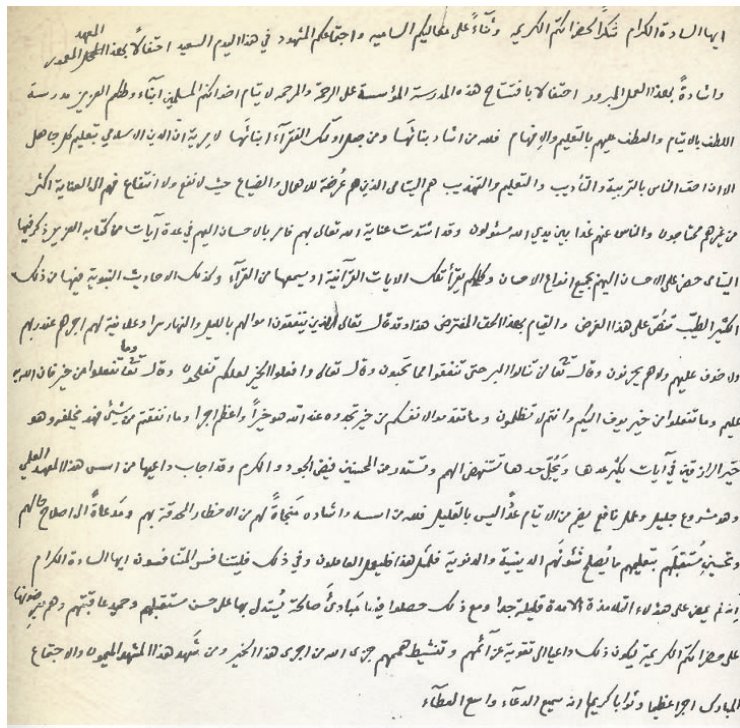 ايها السادة الكرام شكراً لحضراتكم الكريمة وثناءً على معاليكم الساميه واجتماعكم المشهود في هذا اليوم السعيد احتفالاً بهذا المعهد
واشادةً بهذا العمل المبرور احتفالا بافتتاح هذه المدرسة المؤسسة على الرحمة والمرحمة لايتام اخوانكم المسلمين ابناء وطنكم العزيز مدرسة
اللطف بالايتام والعطف عليهم بالتعليم والافهام فلله من اشاد بنائها ومن جعل اولئك الفقرآء ابنائها لا مرية ان الدين الاسلامي بتعليم كل جاهل
الا ان احق الناس بالتربية والتأديب والتعليم والتهذيب هم اليتامى الذين هم عُرضة للاهمال والضياع حيث لا نفع ولا انتفاع فهم الى العناية اكثر
من غيرهم محتاجون والناس عنهم غدا بين يدي الله مسئولون وقد اشتدت عناية الله تعالى بهم فامر بالاحسان اليهم في عدة آيات من كتابه العزيز ذكر فيها
اليتامى حض على الاحسان اليهم بجميع انواع الاحسان وكلكم يقرأ تلك الايات القرآنية او يسمعها من القرآء وكذلك الاحاديث النبوية فيها من ذلك
الكثير الطيّب تنصّ على هذا الغرض والقيام بهذا الحق المفترض هذا وقد قال تعالى الذين ينفقون اموالهم بالليل والنهار سرا وعلانية لهم اجرهم عند ربهم
ولا خوف عليهم ولا هم يحزنون وقال تعا لن تنالوا البر حتى تنفقوا مما تحبون وقال تعالى وافعلوا الخير لعلكم تفلحون وقال تعا وما تفعلوا من خير فان الله به
عليم وما تنفقوا من خير يوف اليكم وانتم لا تظلمون وما تقدموا لانفسكم من خير تجدوه عند الله هو خيراً واعظم اجرا وما انفقتم من شيئ فهو يخلفه وهو
خير الرازقين في آيات يكثر عدها ويَجُلّ حدها تستنهض الهمم وتستدر من المحسنين فيض الجود والكرم وقد اجاب داعيها من اسس هذا المعهد العلمي
وهو مشروع جليل وعمل نافع يضم من الايتام عدًّا ليس بالقليل فلله من اسسه واشاده منجاةً لهم من الاخطار المحدقة بهم ومَدعاةً الى اصلاح حالهم
وتحسينِ مُستقبلهم بتعليهم ما يُصلح شئونهم الدينية والدنيوية فلمثل هذا فليعمل العاملون وفي ذلك فليتنافس المتنافسون ايها السادة الكرام
اِنه لم يمض على هؤلاء التلامذة الا مدة قليلة جدا ومع ذلك حصلوا فيها مَبادئ صالحة يُستدل بها على حسن مستقبلهم وحميد عاقبتهم وهم
على حضراتكم الكريمة ليكون ذلك داعيا الى تقوية عزآئمهم وتنشيط هممهم جزى الله من اجرى هذا الخير ومن شَهِد هذا المشهد الميمون والاجتماع
المبارك اجرا عظيما وثوابا كريما انه سميع الدعآء واسع العطآء